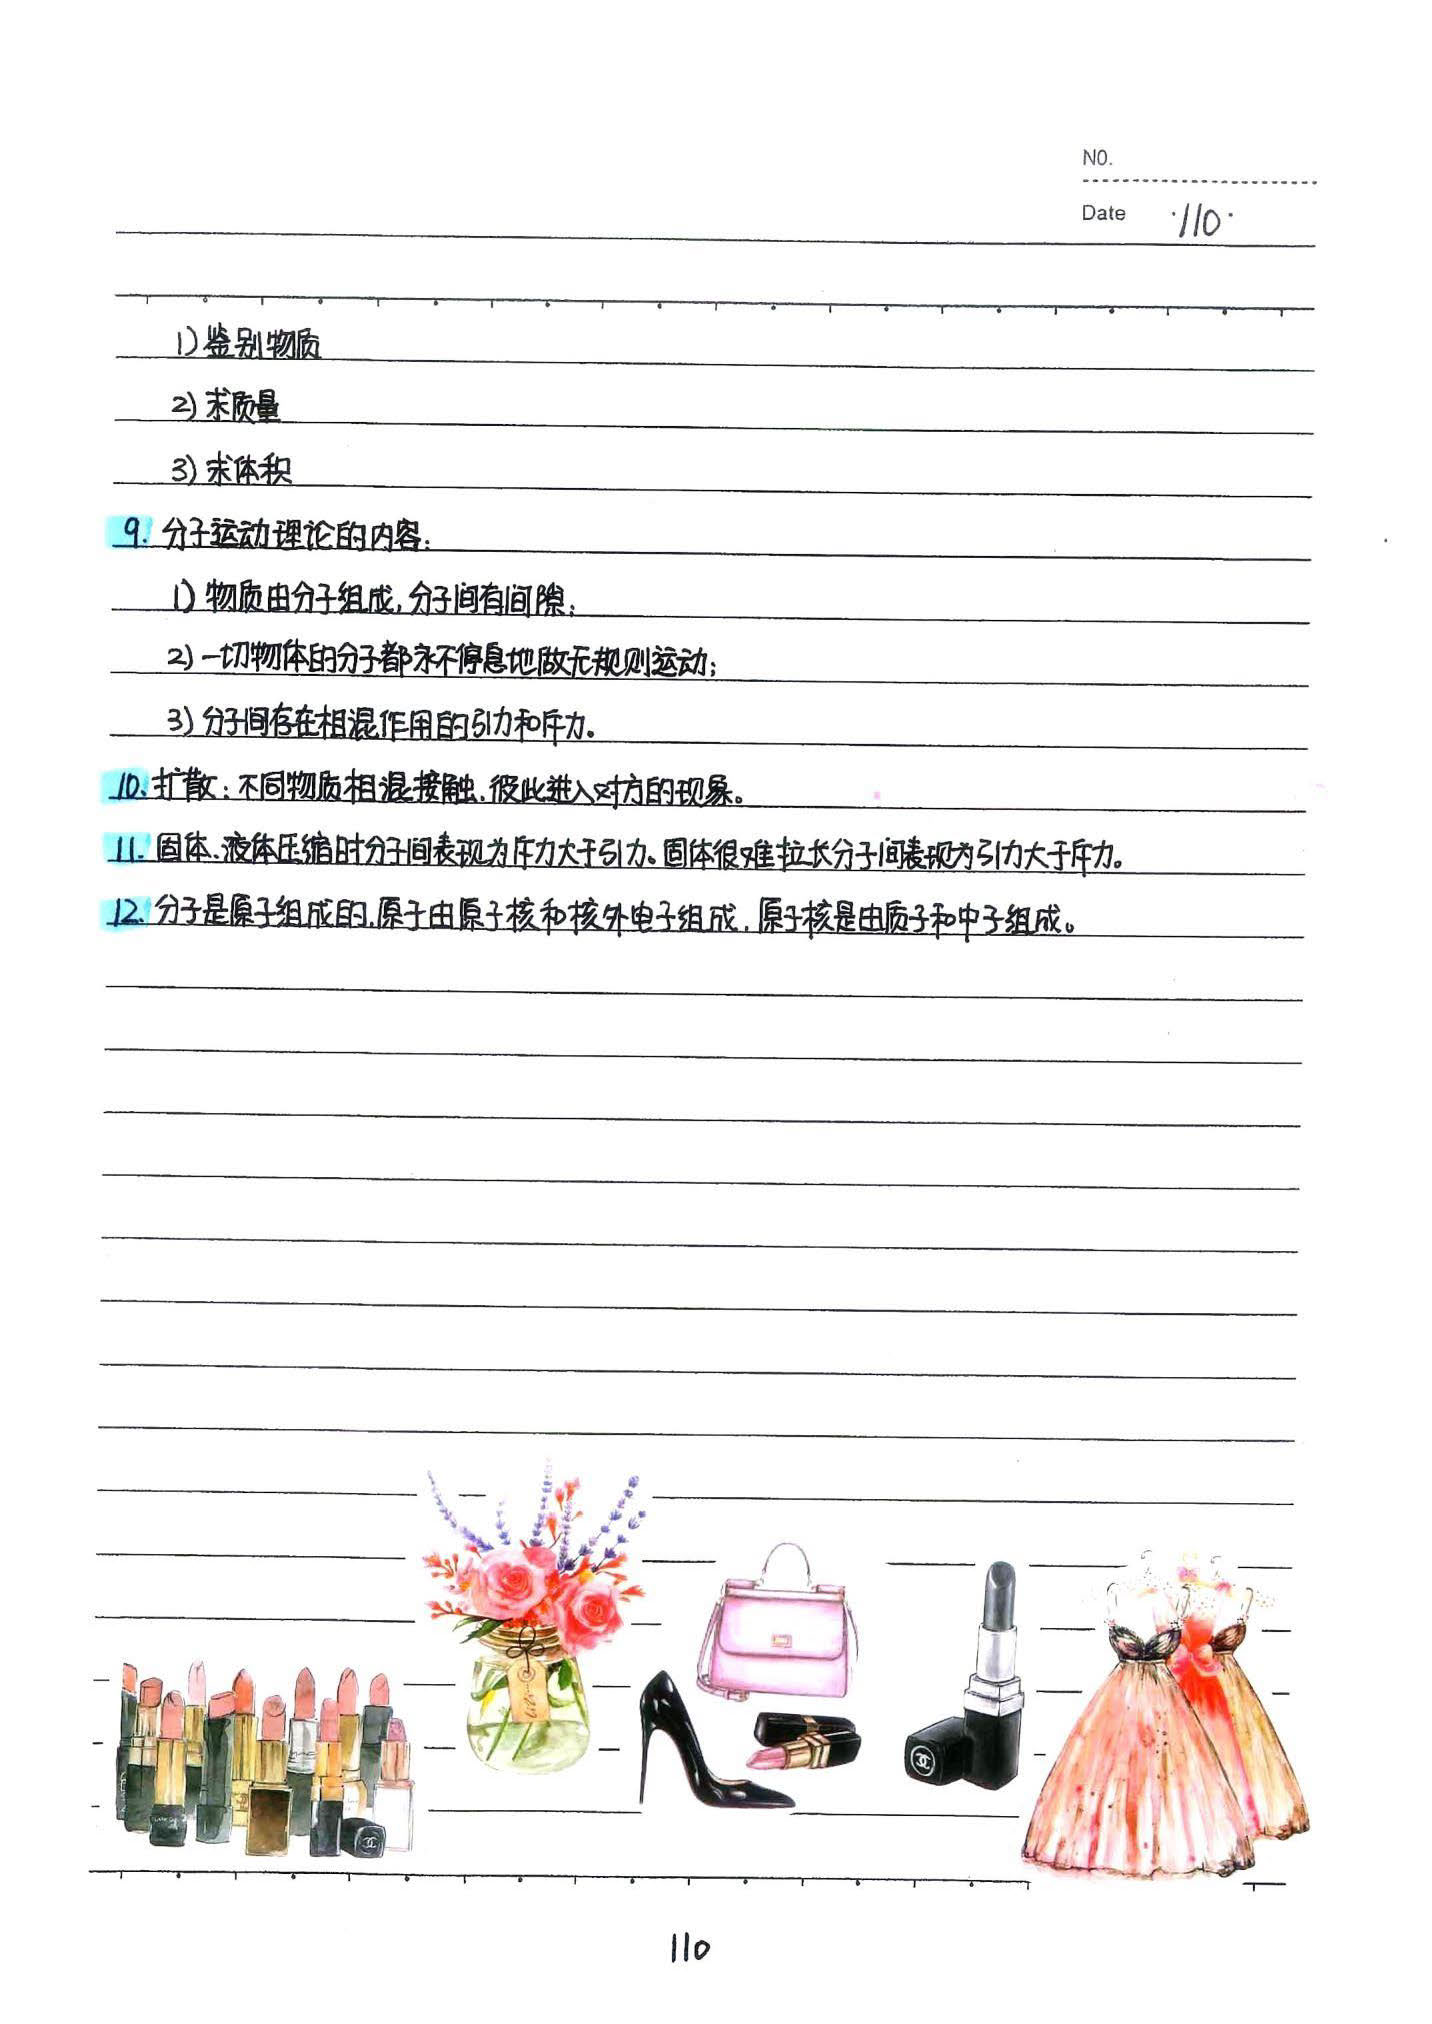 NO.
Date ·110·
1)鉴别物质
2)求质量
3)求体积
9. 分子运动理论的内容:
1) 物质由分子组成,分子间有间隙;
2)一切物体的分子都永不停息地做无规则运动;
3)分子间存在相混作用的引力和斥力。
10. 扩散:不同物质相混接触,彼此进入对方的现象。
11. 固体、液体压缩时分子间表现为斥力大于引力。固体很难拉长分子间表现为引力大于斥力。
12. 分子是原子组成的,原子由原子核和核外电子组成,原子核是由质子和中子组成。
110